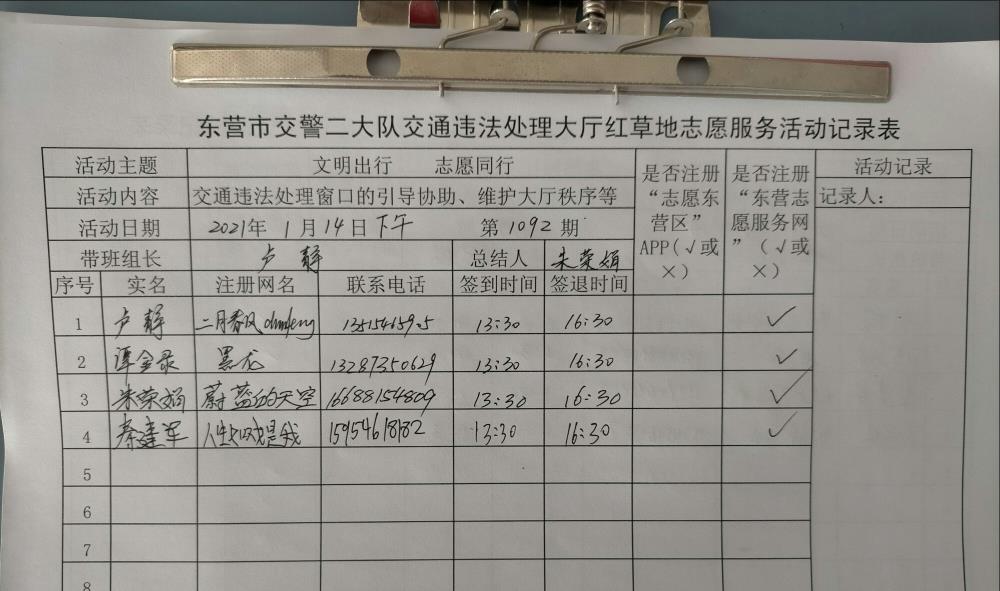 东营市交警二大队交通违法处理大厅红草地志愿服务活动记录表
活动主题 文明出行 志愿同行 是否注册“志愿东营区”APP(√或×) 是否注册“东营志愿服务网”（√或×） 活动记录
活动内容 交通违法处理窗口的引导协助、维护大厅秩序等 记录人：
活动日期 2021年 1月14日下午 第1092期
带班组长 卢静 总结人 朱荣娟
序号 实名 注册网名 联系电话 签到时间 签退时间
1 卢静 二月春风 13:30 16:30 ✓
2 谭金录 黑龙 13287350629 13:30 16:30 ✓
3 朱荣娟 蔚蓝的天空 16688154809 13:30 16:30 ✓
4 秦建军 人生如戏是我 15954618182 13:30 16:30 ✓
5
6
7
8